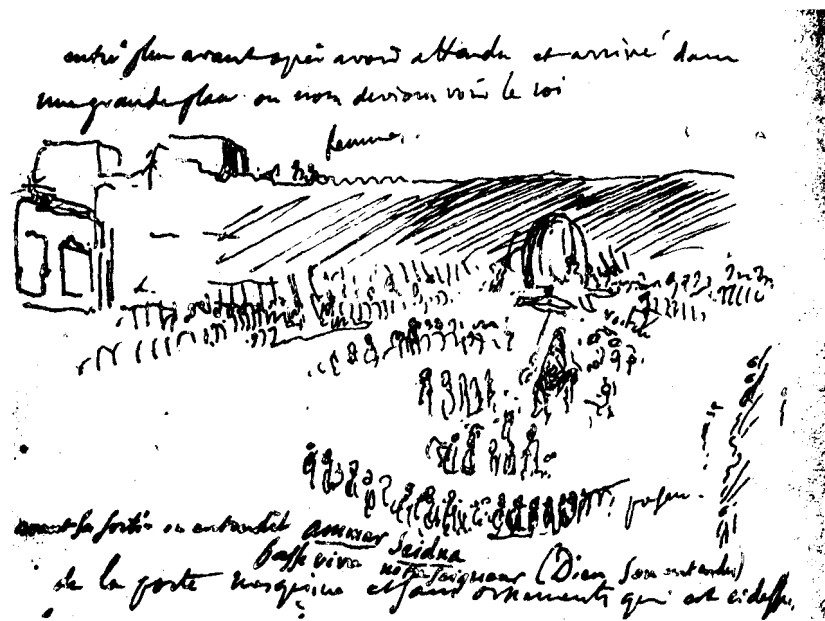 entré plus avant après avoir attendu et arrivé dans
une grande place où nous devions voir le roi
femmes.
avant sa sortie on entendit ammar Seidna
notre Seigneur (Dieu sous entendu)
de la porte mesquine et sans ornements qui est ci dessus.